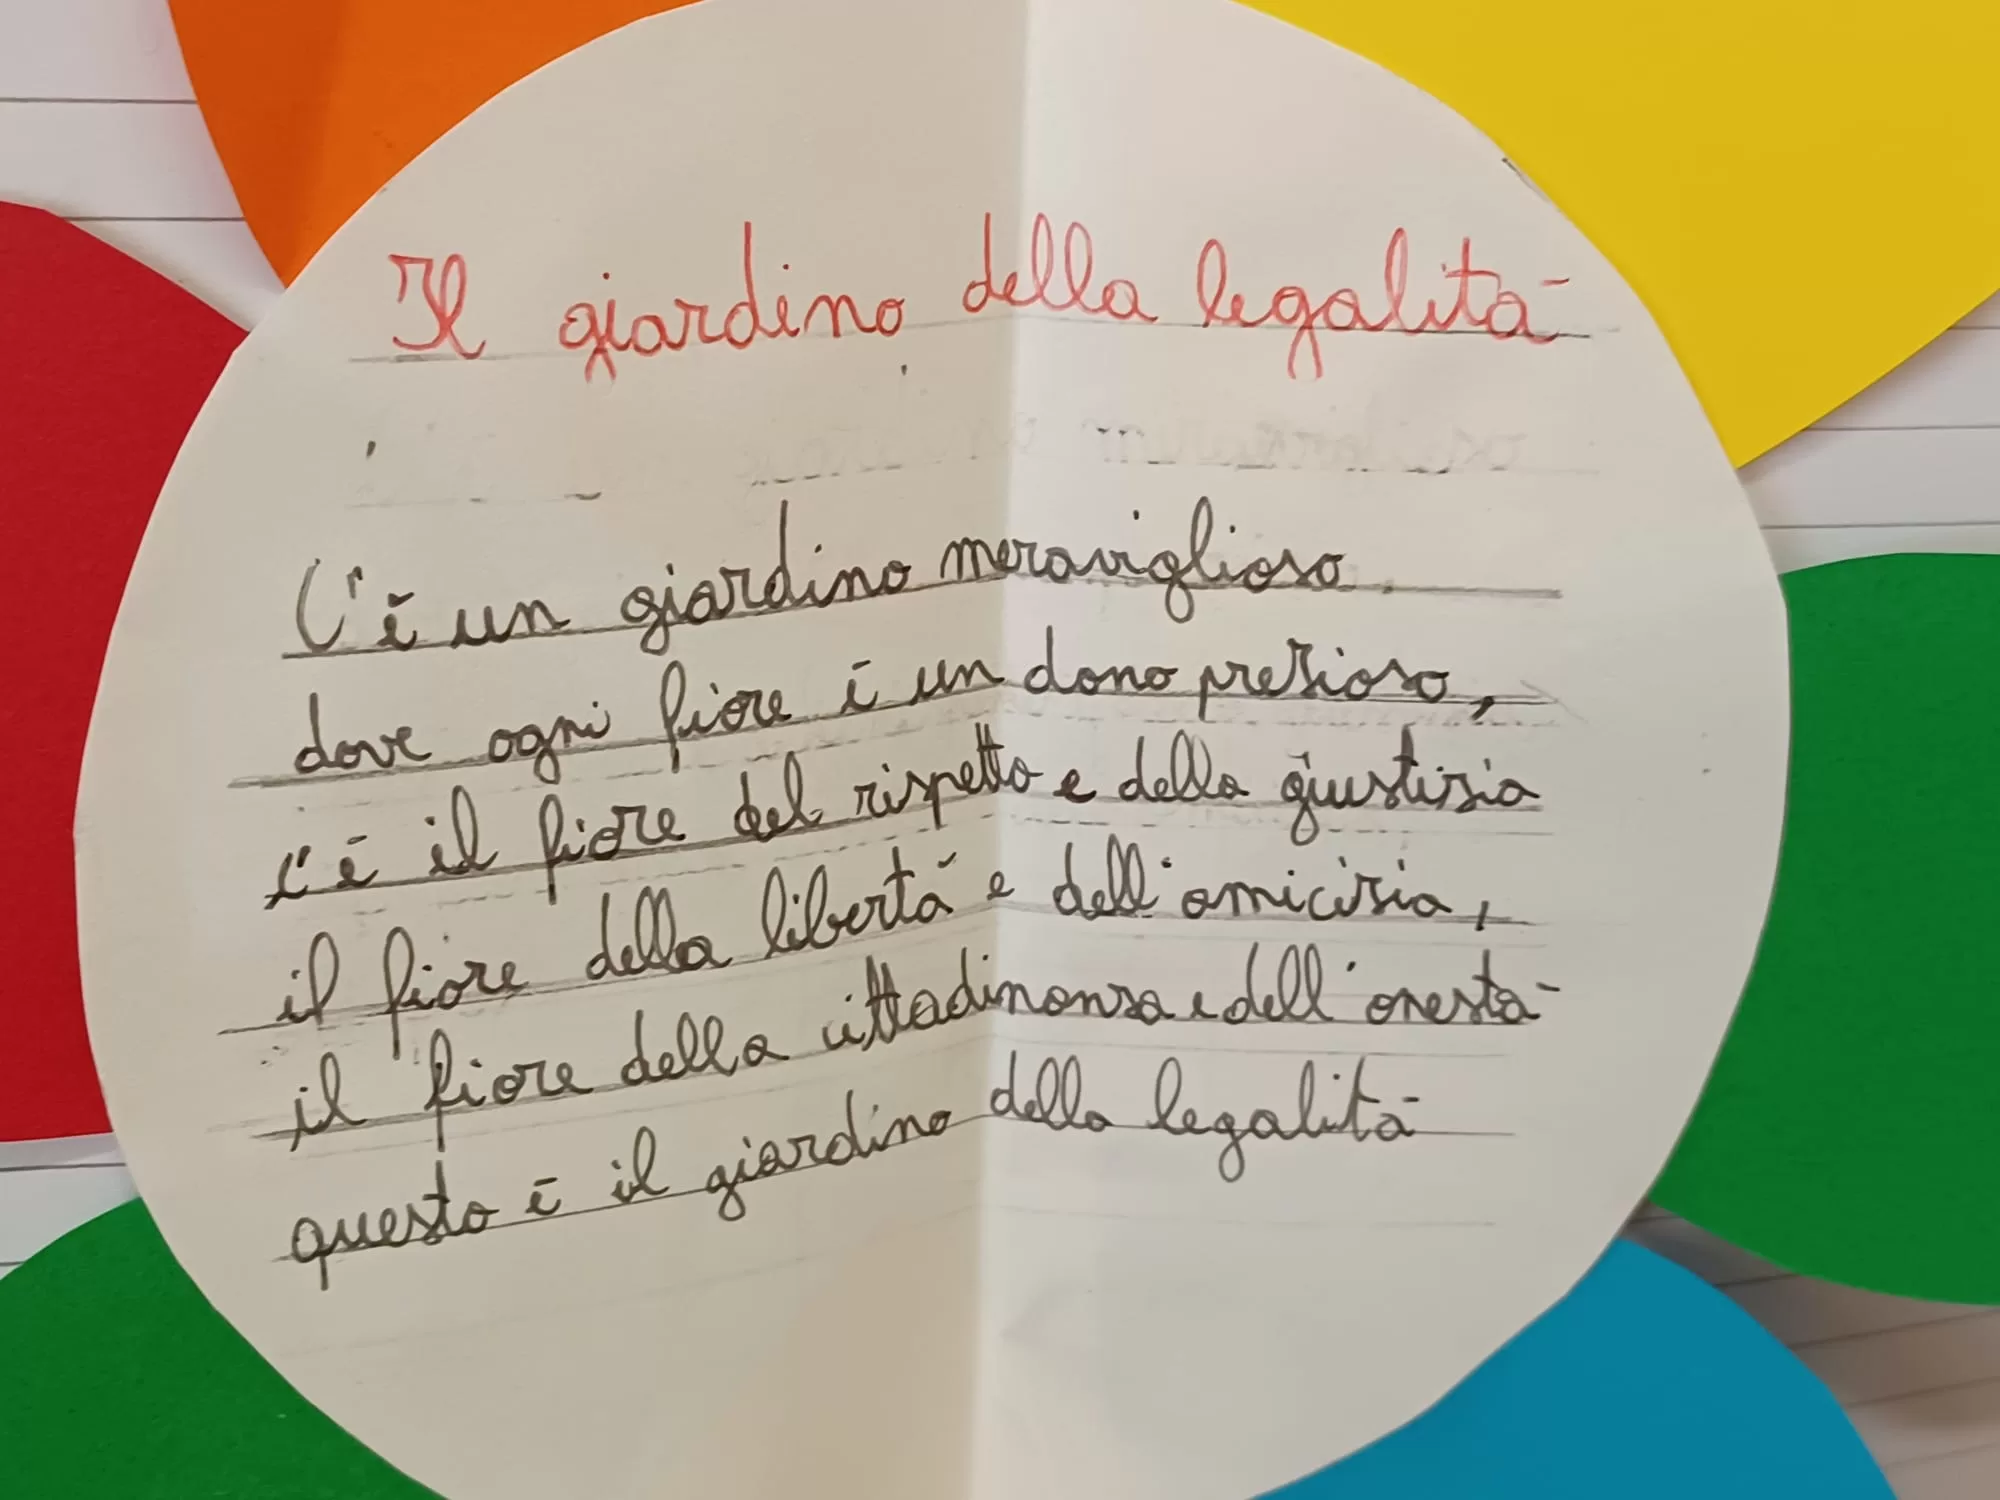 Il giardino della legalità
C'è un giardino meraviglioso.
dove ogni fiore è un dono prezioso,
c'è il fiore del rispetto e della giustizia
il fiore della libertà e dell'amicizia,
il fiore della cittadinanza e dell'onestà
questo è il giardino della legalità